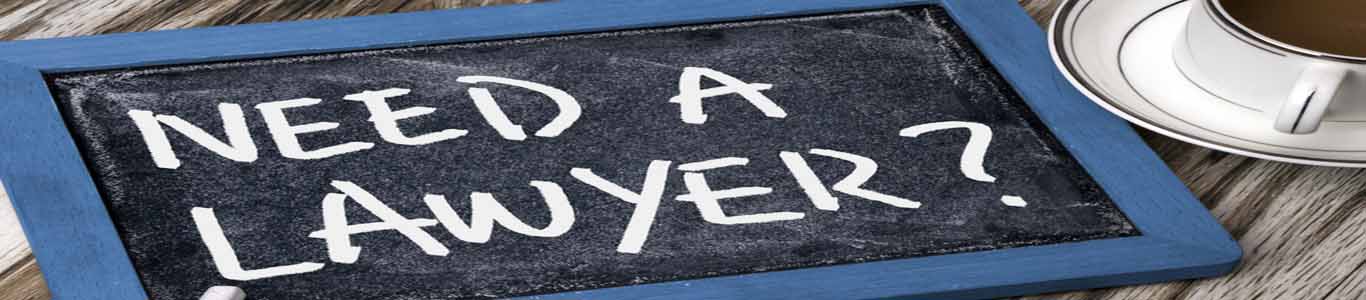 NEED A
LAWYER?